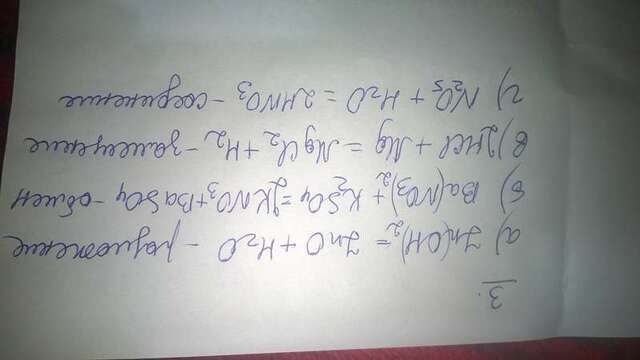 3.
а) Zn(OH)₂ = ZnO + H₂O - разложение
б) Ba(NO₃)₂ + K₂SO₄ = 2KNO₃ + BaSO₄ - обмен
в) 2HCl + Mg = MgCl₂ + H₂ - замещение
г) N₂O₅ + H₂O = 2HNO₃ - соединение